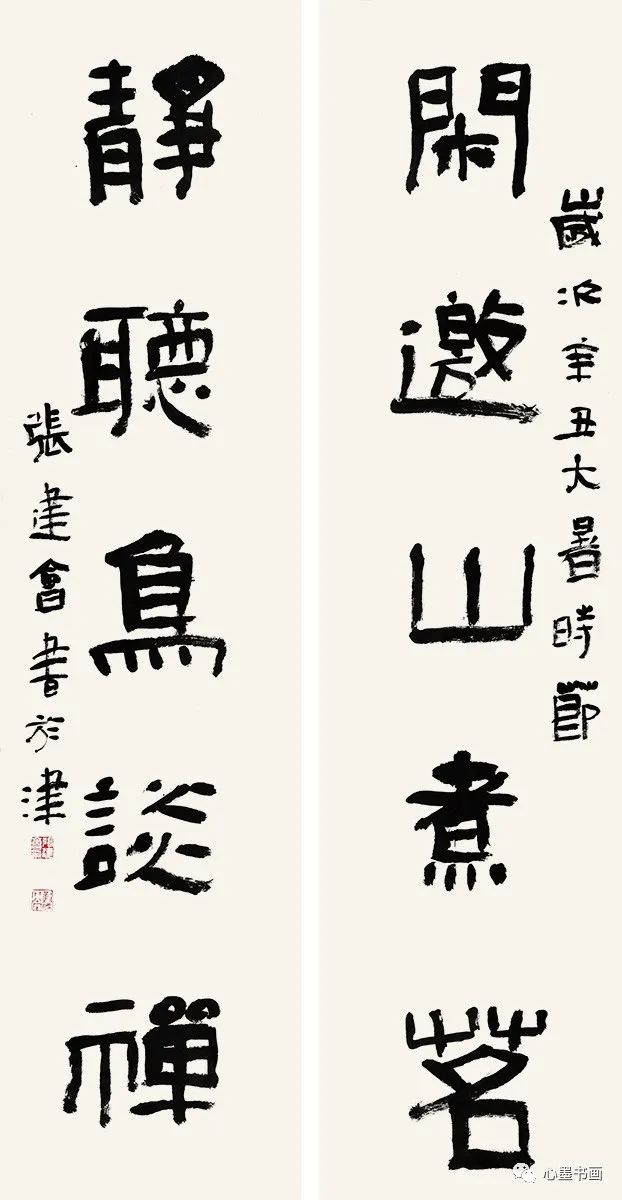 閑邀山煮茗
歲次辛丑大暑時節
靜聽鳥談禪
張建會書於津
心墨书画